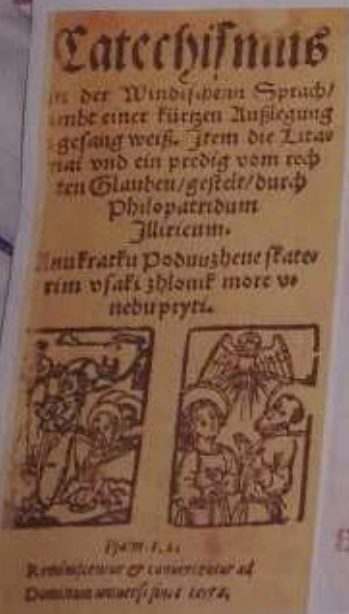 Catechismus
in der Windischenn Sprach/
sambt einer kürtzen Außlegung
gesang weiß. Item die Lita⸗
nai vnd ein predig vom rech
ten Glauben/gestelt/durch
Philopatridum
Illiricum.
Anu kratku Poduuzhene skate⸗
rim vsaki zhlouik more v⸗
nebu pryti.
Psam. 1. 2.
Reminiscentur & conuertentur ad
Dominum uniuersi fines terræ,